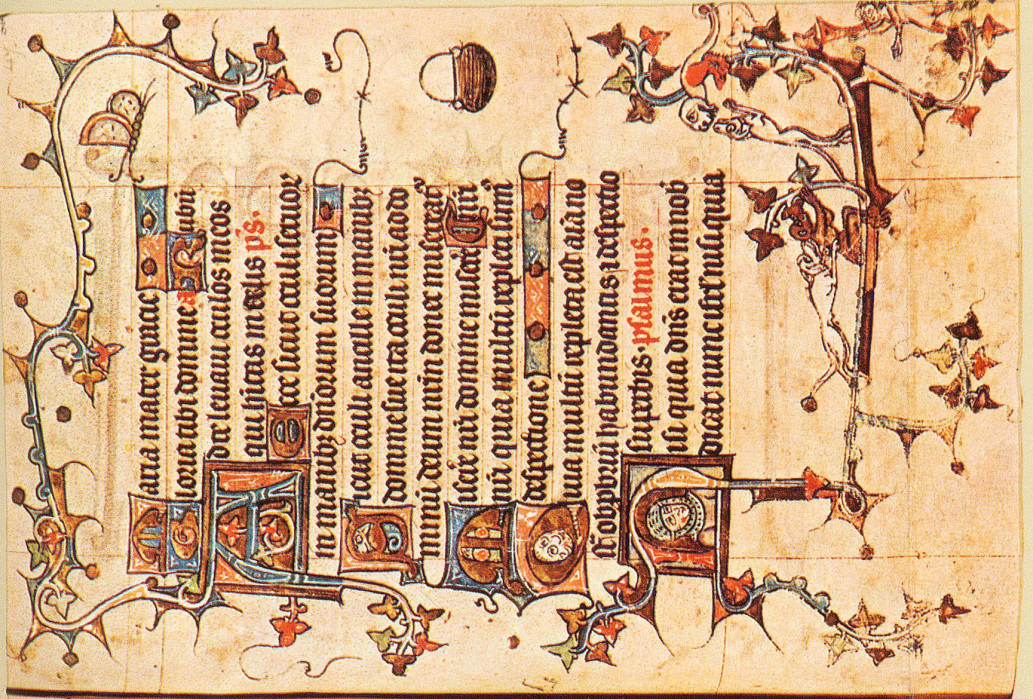 Maria mater gracie
Gloria tibi domine a Rubū
Ad te leuaui oculos meos
qui habitas in celis ps.
Ecce sicut oculi seruor
in manibꝫ dn̄orum suorum
Sicut oculi ancille in manibꝫ
domine sue ita oculi nr̄i ad do
minū deum nr̄m donec misereat
nr̄i domine
nr̄i quia multū repleti sum
despectione
Quia multū repleta est aīa
obprobriū habundantibꝫ et despectio
superbis psalmus.
Nisi quia dn̄s erat in nob
dicat nunc isrl̄ nisi quia